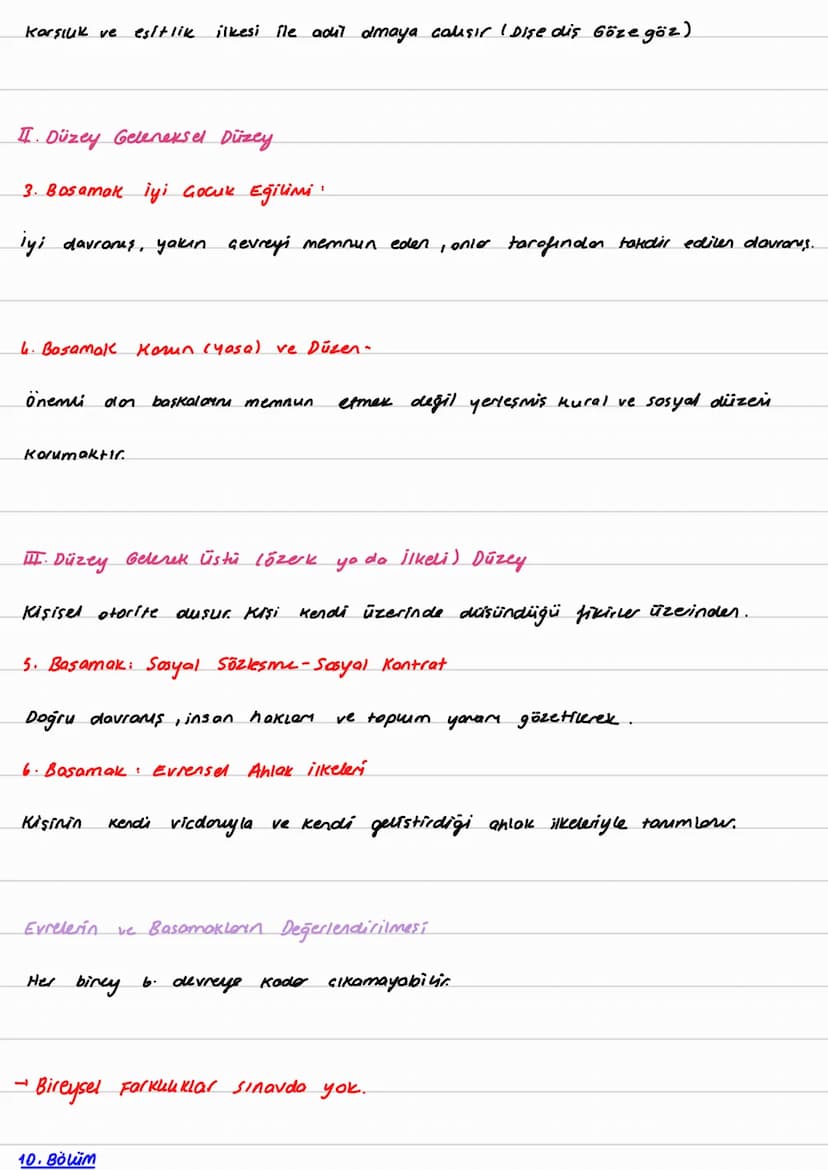 Karşılık ve eşitlik ilkesi ile adil olmaya çalışır (Dişe diş Göze göz)
II. Düzey Geleneksel Düzey
3. Basamak İyi Çocuk Eğilimi:
İyi davranış, yakın çevreyi memnun eden, onlar tarafından takdir edilen davranış.
4. Basamak Kanun (yasa) ve Düzen-
Önemli olan başkalarını memnun etmek değil yerleşmiş kural ve sosyal düzeni
korumaktır.
III. Düzey Gelenek Üstü (özerk ya da İlkeli) Düzey
Kişisel otorite oluşur. Kişi kendi üzerinde düşündüğü fikirler üzerinden.
5. Başamak: Sosyal Sözleşme-Sosyal Kontrat
Doğru davranış, insan hakları ve toplum yararı gözetilerek.
6. Basamak: Evrensel Ahlak ilkeleri
Kişinin kendi vicdanıyla ve kendi geliştirdiği ahlak ilkeleriyle tanımlanır.
Evrelerin ve Basamakların Değerlendirilmesi
Her birey 6. devreye kadar çıkamayabilir.
→ Bireysel Farklılıklar sınavda yok.
10. Bölüm